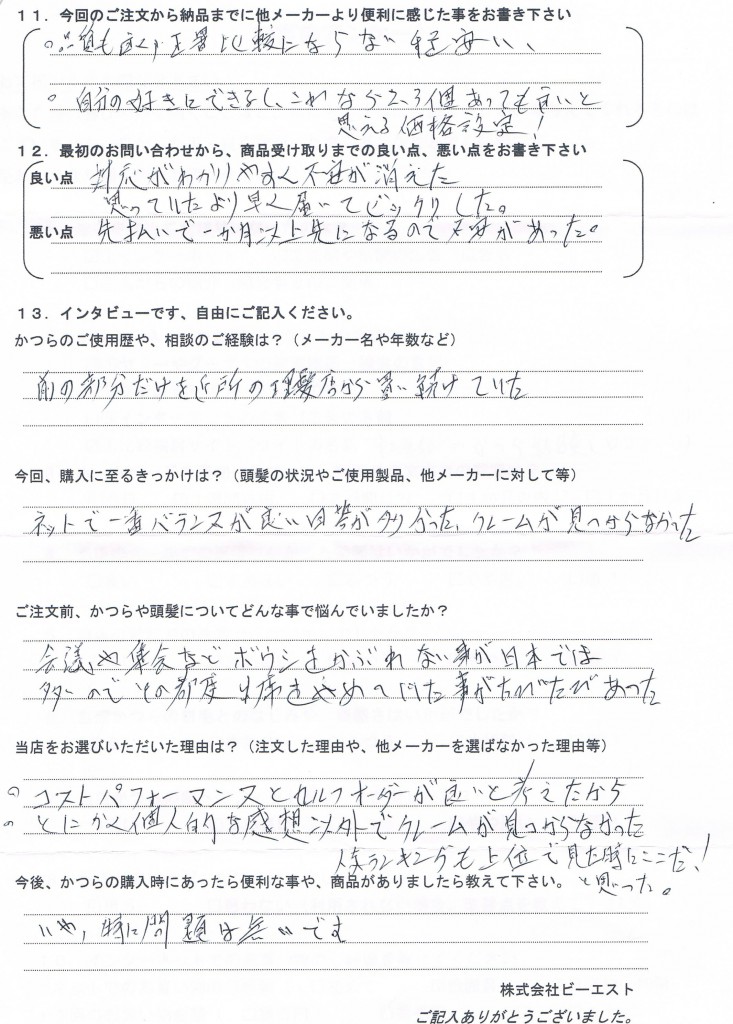 11．今回のご注文から納品までに他メーカーより便利に感じた事をお書き下さい
○品質も良く、正署比較にならない程安い、
○自分の好きにできるし、これなら2、3個あっても良いと
思える価格設定！
12．最初のお問い合わせから、商品受け取りまでの良い点、悪い点をお書き下さい
良い点 対応がわかりやすく不安が消えた
思っていたより早く届いてビックリした。
悪い点 先払いで一か月以上先になるので不安があった。
13．インタビューです、自由にご記入ください。
かつらのご使用歴や、相談のご経験は？（メーカー名や年数など）
前の部分だけを近所の理髪店から買い続けていた
今回、購入に至るきっかけは？（頭髪の状況やご使用製品、他メーカーに対して等）
ネットで一番バランスが良い回答が多かった、クレームが見つからなかった
ご注文前、かつらや頭髪についてどんな事で悩んでいましたか？
会議や集会などボウシをかぶれない事が日本では
多いのでその都度出席をやめていた事がたびたびあった
当店をお選びいただいた理由は？（注文した理由や、他メーカーを選ばなかった理由等）
○コストパフォーマンスとセルフオーダーが良いと考えたから
○とにかく個人的な感想以外でクレームが見つからなかった
人気ランキングも上位で見た時にここだ！
と思った。
今後、かつらの購入時にあったら便利な事や、商品がありましたら教えて下さい。
いや、特に問題は無いです
株式会社ビーエスト
ご記入ありがとうございました。